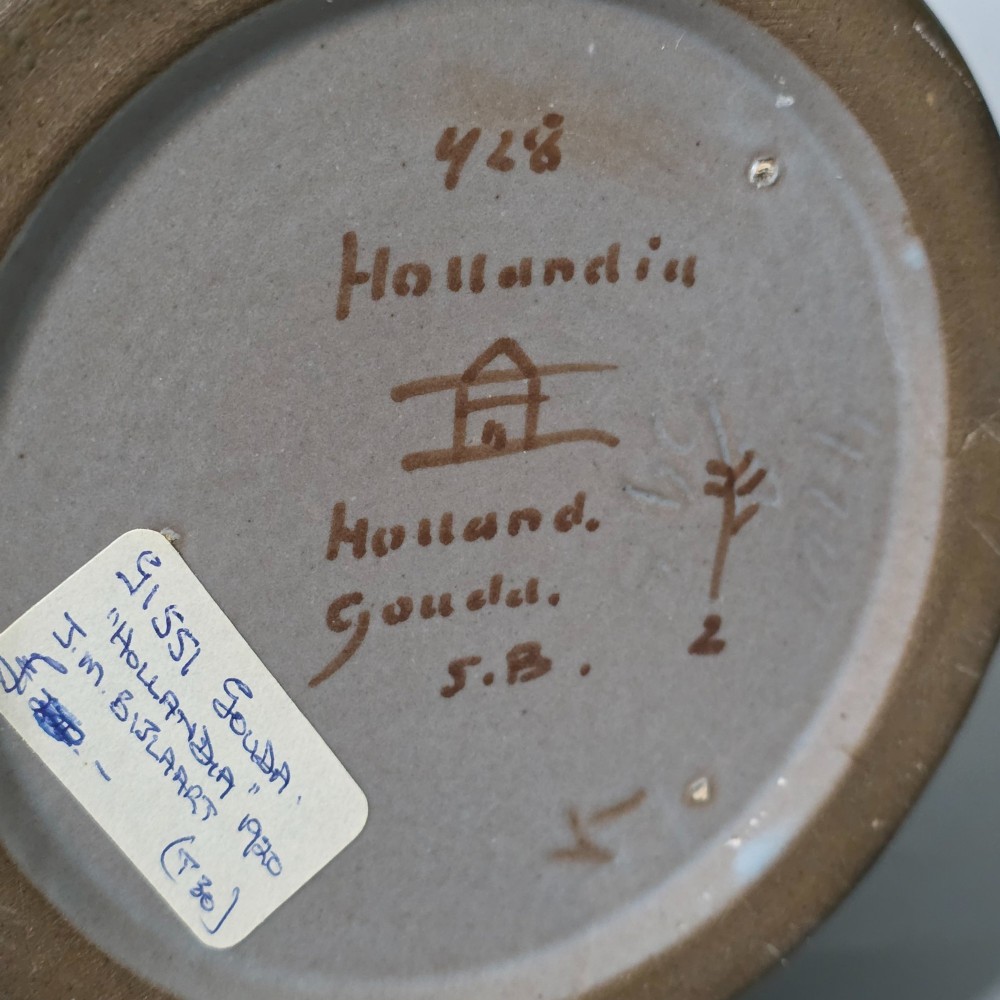 428
Hollandia
Holland.
Gouda.
S.B.
2
K
Y1551 GOUDA.
"HOLLANDIA" 1920
J.M. BIJLAART (T30)